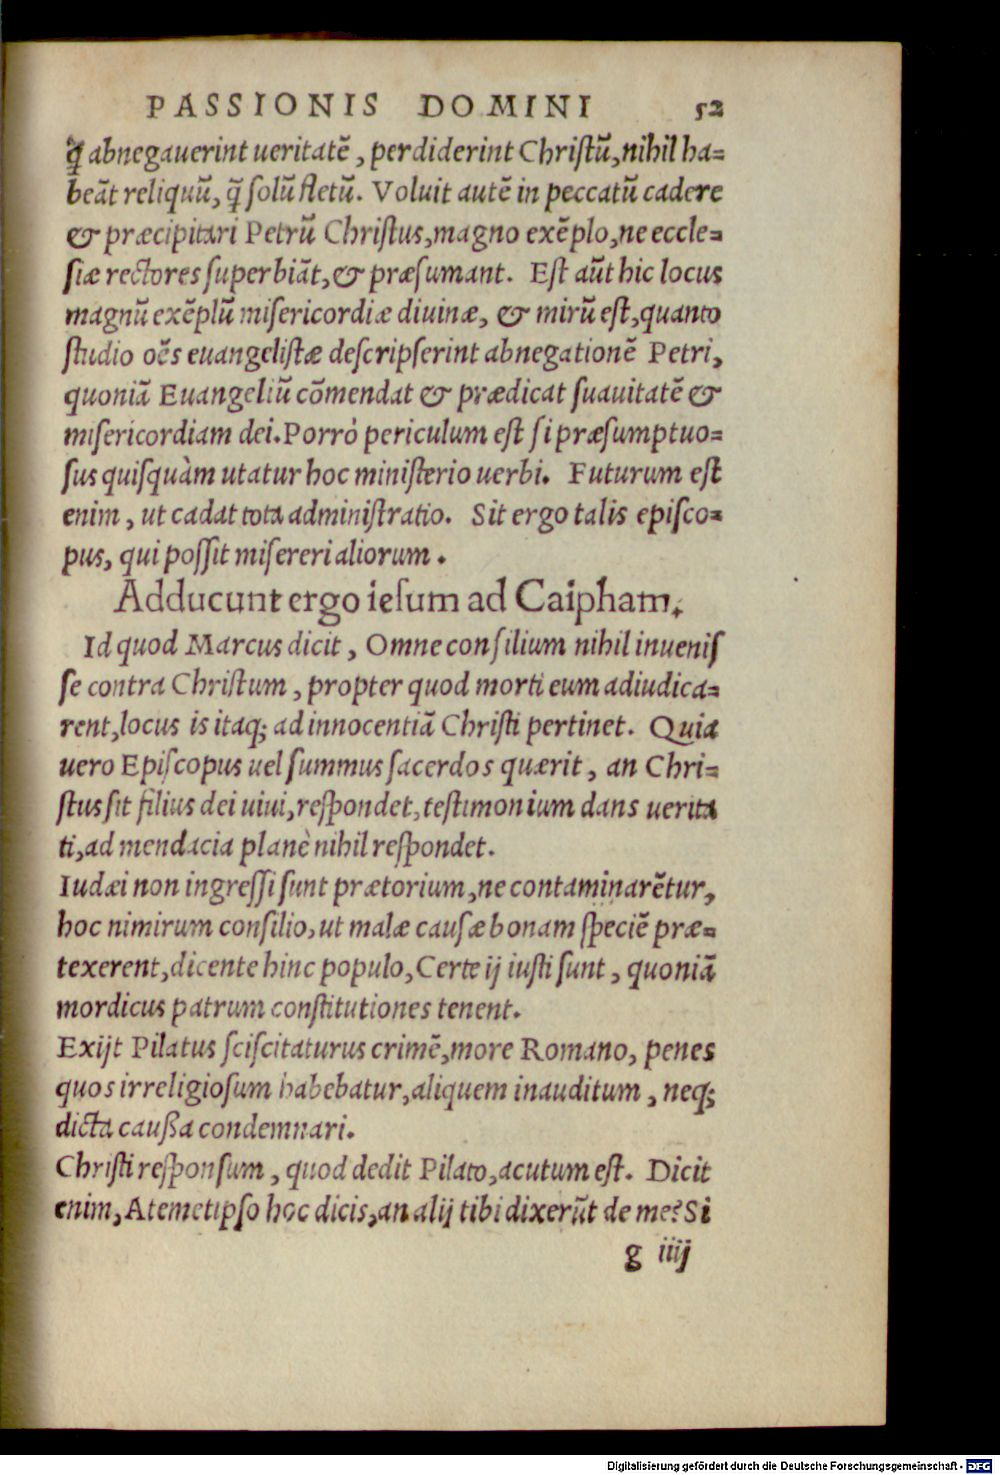 PASSIONIS DOMINI 52
ꝗ̃ abnegauerint ueritatẽ, perdiderint Chriſtũ, nihil ha=
beãt reliquũ, q̃ ſolũ fletũ. Voluit autẽ in peccatũ cadere
& præcipitari Petrũ Chriſtus, magno exẽplo, ne eccle=
ſiæ rectores ſuperbiãt, & præſumant. Eſt aũt hic locus
magnũ exẽplũ miſericordiæ diuinæ, & mirũ eſt, quanto
ſtudio oẽs euangeliſtæ deſcripſerint abnegationẽ Petri,
quoniã Euangeliũ cõmendat & prædicat ſuauitatẽ &
miſericordiam dei. Porrò periculum eſt ſi præſumptuo=
ſus quiſquàm utatur hoc miniſterio uerbi. Futurum eſt
enim, ut cadat tota adminiſtratio. Sit ergo talis epiſco=
pus, qui poſſit miſereri aliorum.
Adducunt ergo ieſum ad Caipham.
Id quod Marcus dicit, Omne conſilium nihil inueniſ
ſe contra Chriſtum, propter quod morti eum adiudica=
rent, locus is itaq; ad innocentiã Chriſti pertinet. Quia
uero Epiſcopus uel ſummus ſacerdos quærit, an Chri=
ſtus ſit filius dei uiui, reſpondet, teſtimonium dans uerita
ti, ad mendacia planè nihil reſpondet.
Iudæi non ingreſſi ſunt prætorium, ne contaminarẽtur,
hoc nimirum conſilio, ut malæ cauſæ bonam ſpeciẽ præ=
texerent, dicente hinc populo, Certe ij iuſti ſunt, quoniã
mordicus patrum conſtitutiones tenent.
Exijt Pilatus ſciſcitaturus crimẽ, more Romano, penes
quos irreligioſum habebatur, aliquem inauditum, neq;
dicta cauſſa condemnari.
Chriſti reſponſum, quod dedit Pilato, acutum eſt. Dicit
enim, A temetipſo hoc dicis, an alij tibi dixerũt de me? Si
g iiij
Digitalisierung gefördert durch die Deutsche Forschungsgemeinschaft - DFG